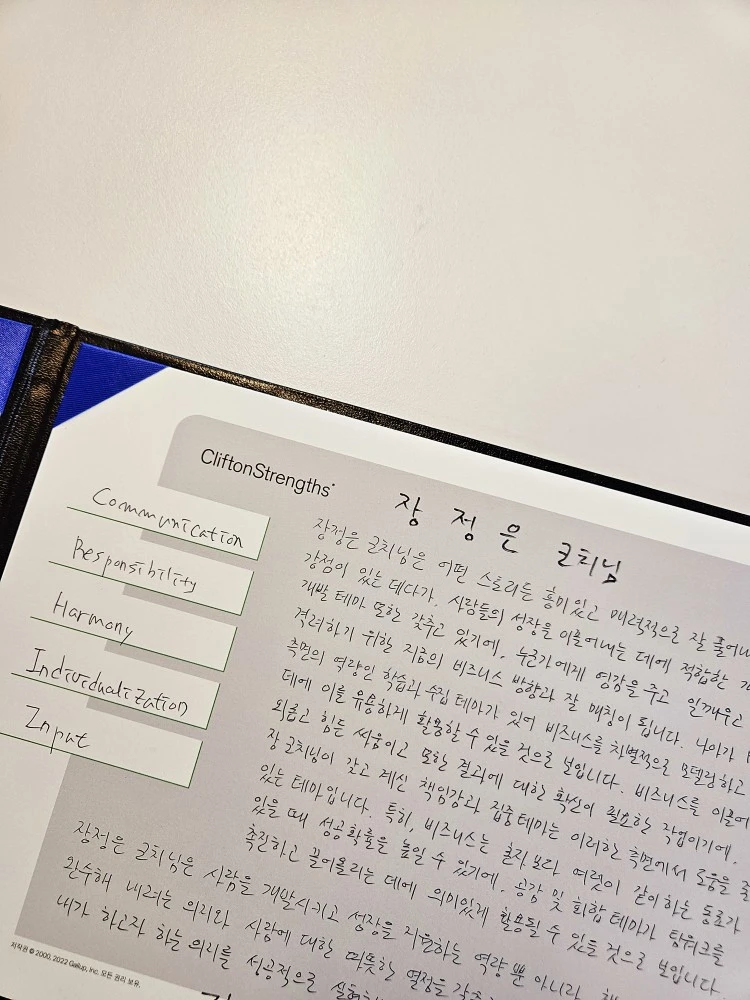 CliftonStrengths®
Communication
Responsibility
Harmony
Individualization
Input
장 정 은 코치님
장정은 코치님은 어떤 스토리든 흥미있고 매력적으로 잘 풀어내
강점이 있는 데다가, 사람들의 성장을 이끌어내는 데에 적합한
개발 테마 또한 갖추고 있기에, 누군가에게 영감을 주고 일깨우고
격려하기 위한 지금의 비즈니스 방향과 잘 매칭이 됩니다. 나아가
측면의 역량인 학습과 수집 테마가 있어 비즈니스를 차별적으로 모델링하고
데에 이를 유용하게 활용할 수 있을 것으로 보입니다. 비즈니스를 이끌어
외롭고 힘든 싸움이고 또한 결과에 대한 확신이 필요한 작업이기에,
장 코치님이 갖고 계신 책임감과 집중 테마는 이러한 측면에서 도움을 줄
있는 테마입니다. 특히, 비즈니스는 혼자보다 여럿이 같이 하는 동료가
있을 때 성공확률을 높일 수 있기에, 공감 및 화합 테마가 팀워크를
촉진하고 끌어올리는 데에 의미있게 활용될 수 있을 것으로 보입니다.
장정은 코치님은 사람을 개발시키고 성장을 지원하는 역량 뿐 아니라,
완수해 내려는 의리와 사람에 대한 따뜻한 열정을
내가 하고자 하는 의리를 성공적으로
저작권 © 2000, 2022 Gallup, Inc. 모든 권리 보유.